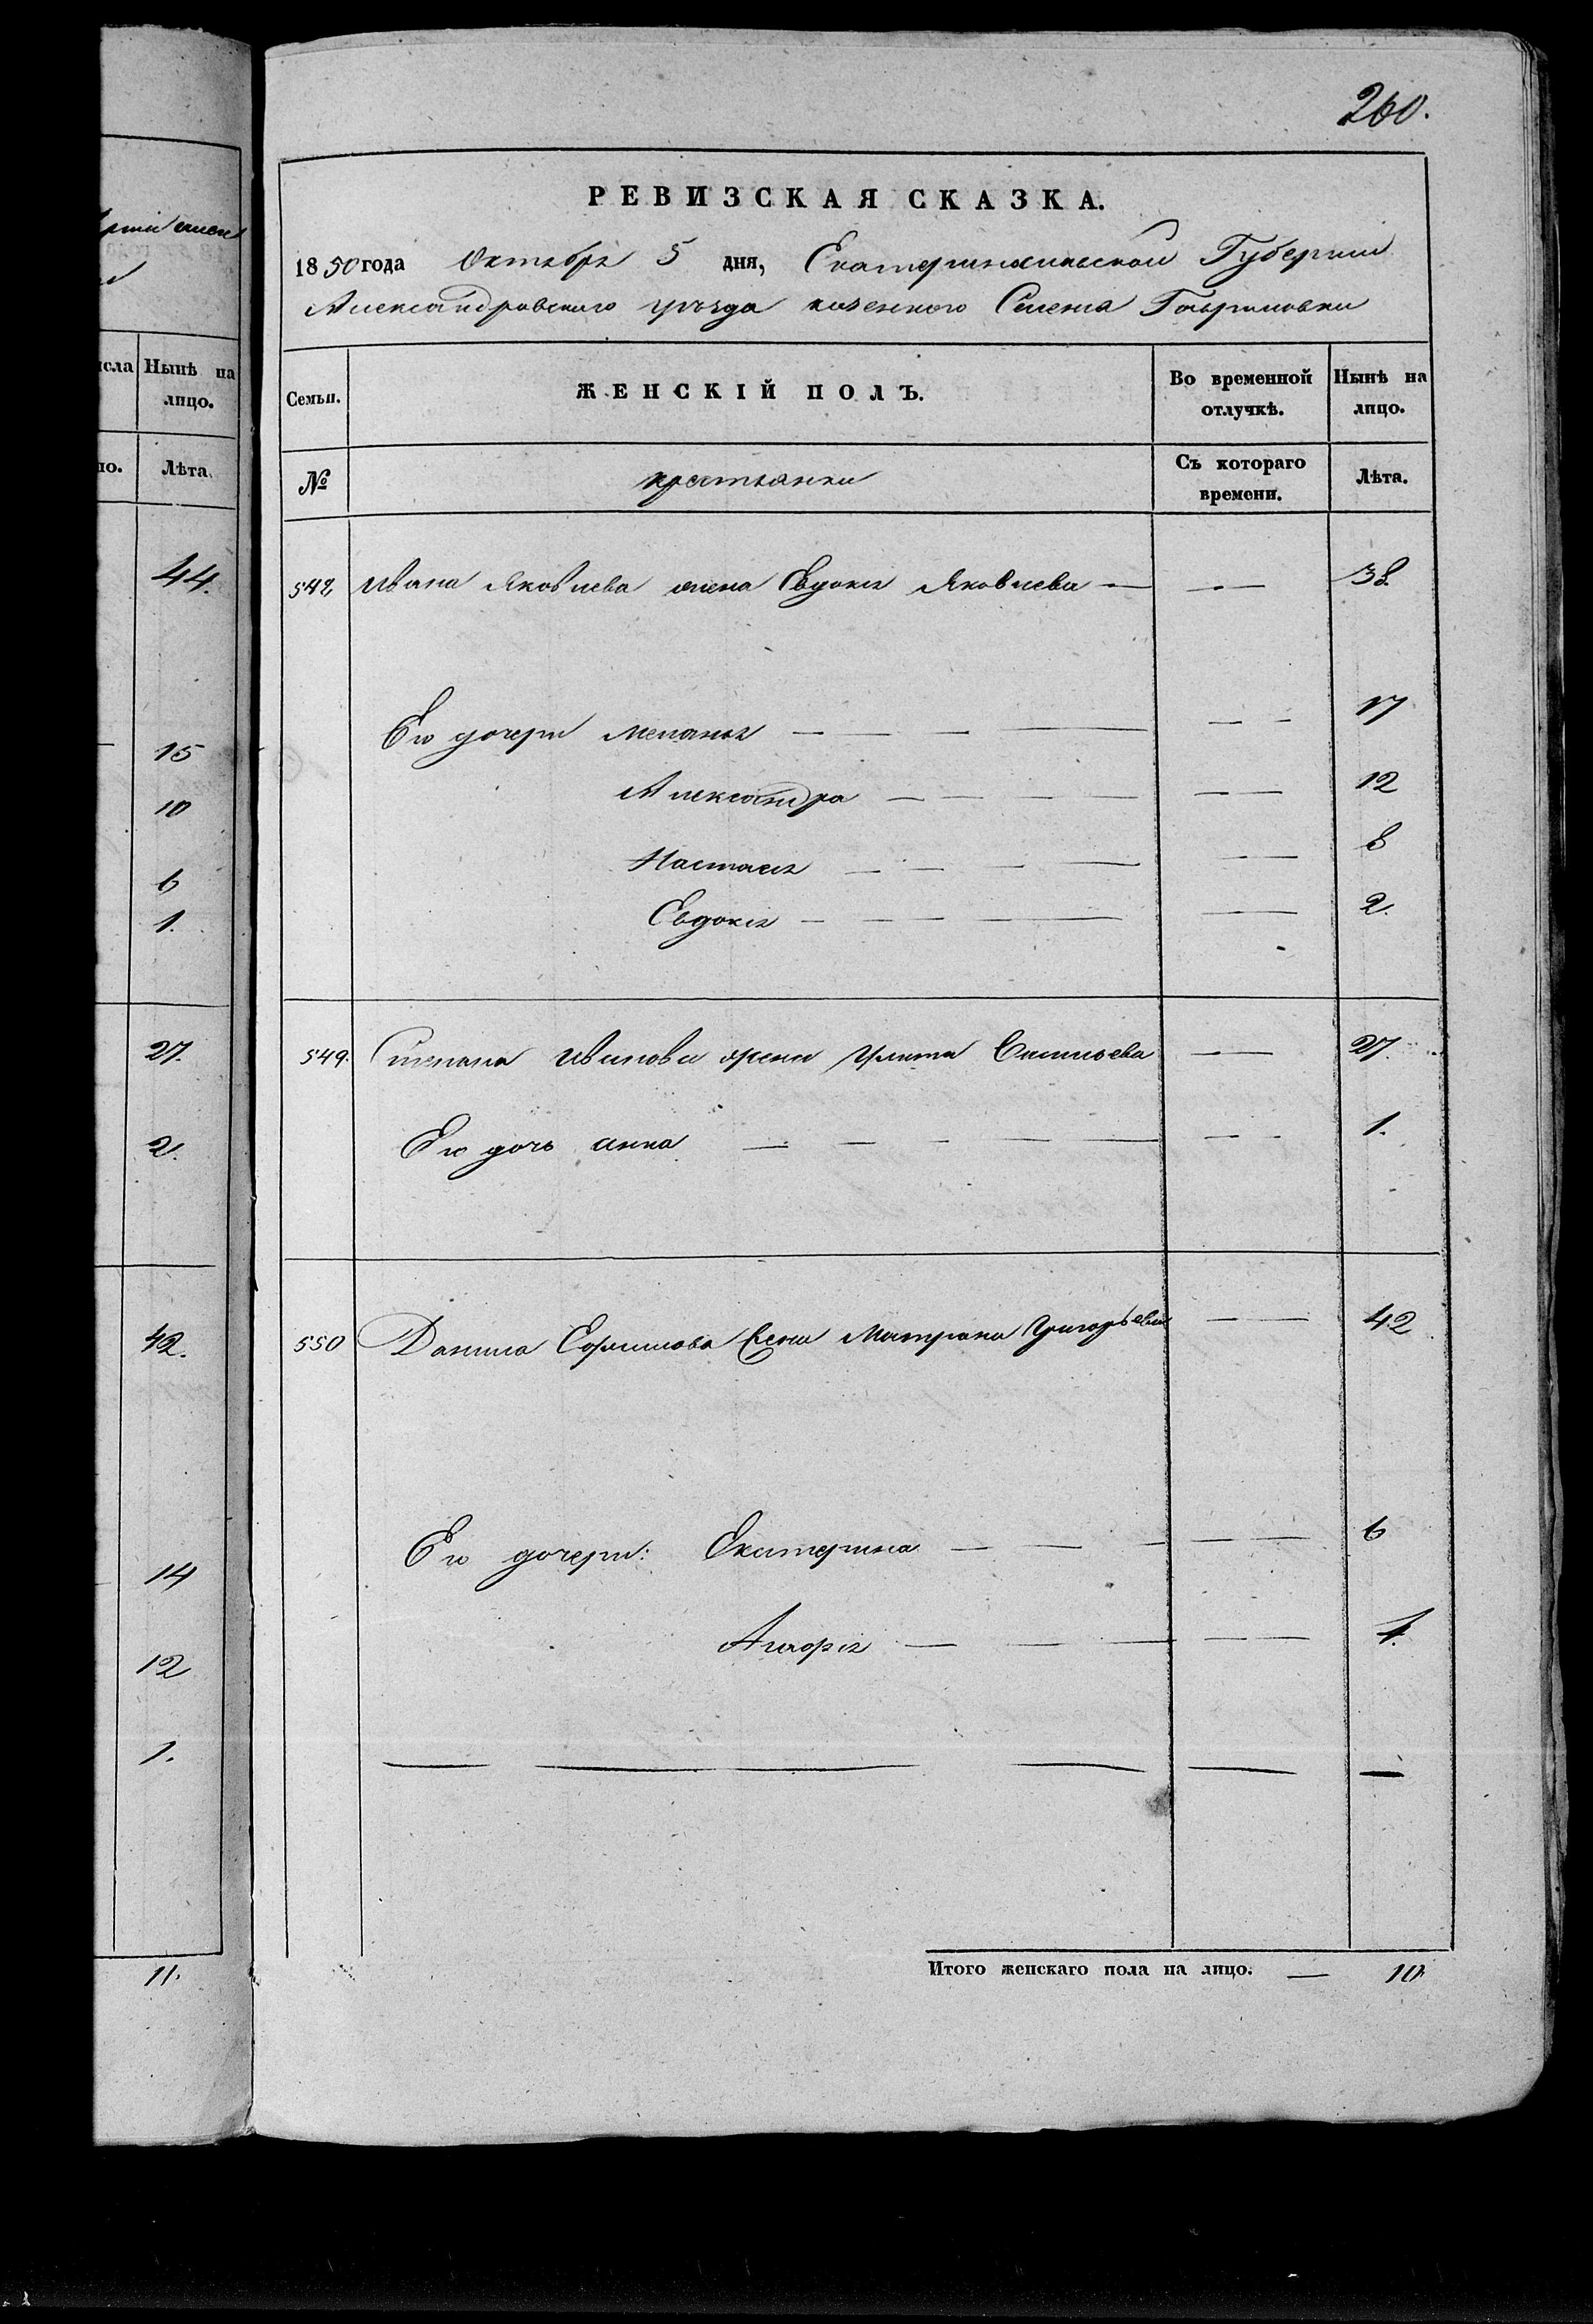 260.
РЕВИЗСКАЯ СКАЗКА.
1850 года Октября 5 дня, Екатеринославской Губернии
Александровского уезда казенного Селения Гавриловки
Семьи.
ЖЕНСКІЙ ПОЛЪ.
Во временной отлучкѣ.
Нынѣ на лицо.
№
крестьянки
Съ котораго времени.
Лѣта.
548 Ивана Яковлева жена Евдокия Яковлева — — 38
Его дочери Меланья — — — — — — 17
Александра — — — — — — 12
Настасия — — — — — 8
Евдокия — — — — — — 2.
549. Степана Иванова жена Улита Васильева — — 27.
Его дочь Анна — — — — — — — 1.
550 Данила Ефимова жена Матрона Григорьева — — 42
Его дочери: Екатерина — — — — — 6
— — — — — 1.
— — — — — —
Итого женскаго пола на лицо. — 10
сла
Нынѣ на лицо.
но.
Лѣта.
44.
15
10
6
1.
27.
2.
42.
14
12
1.
11.